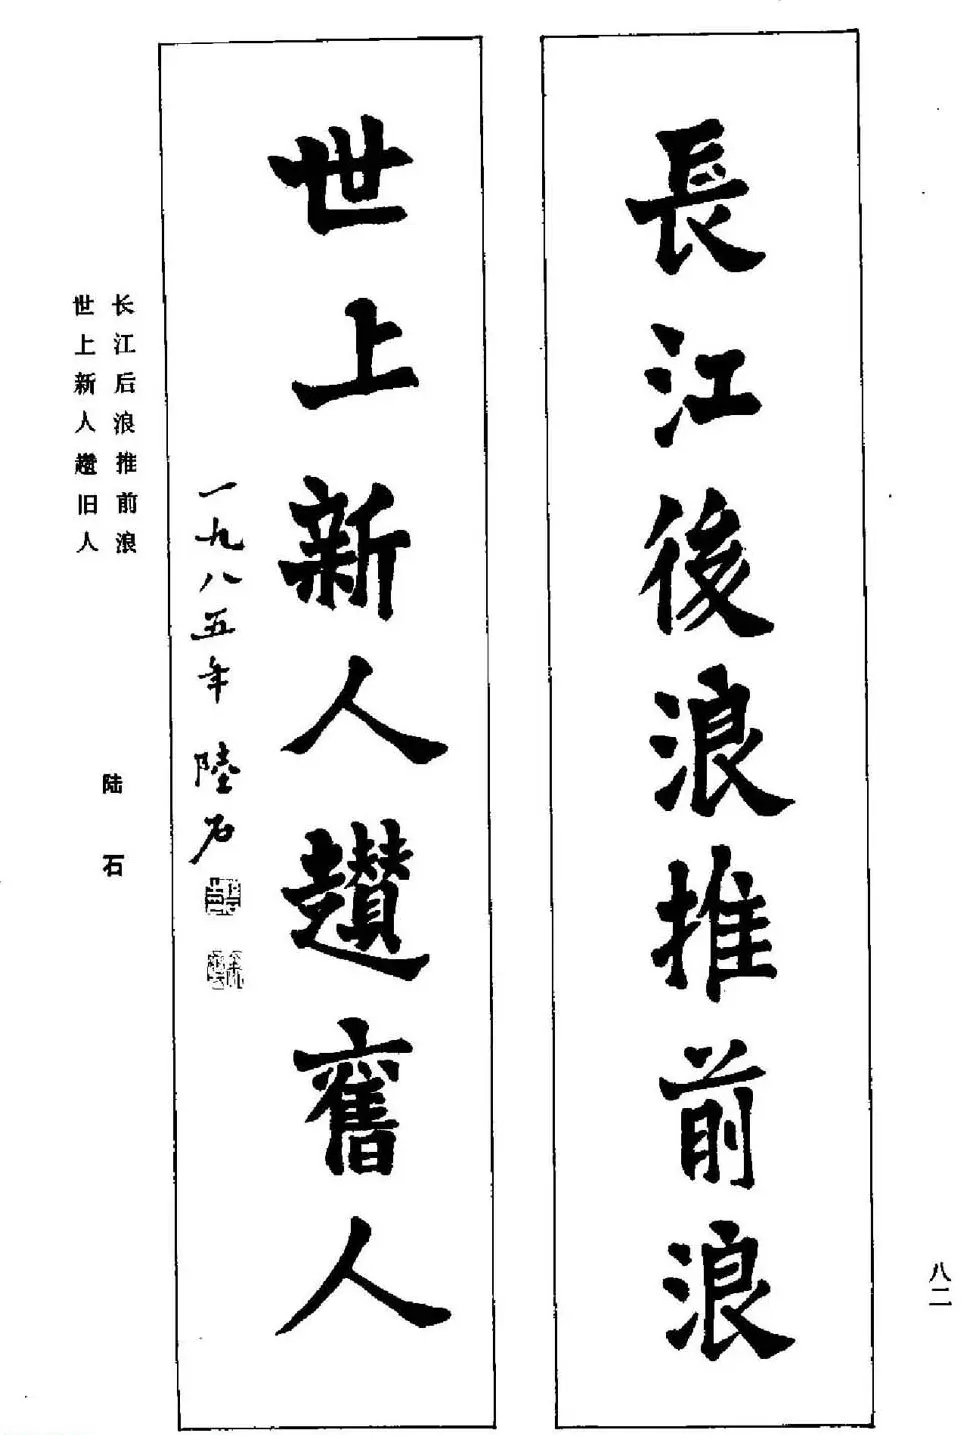 長江後浪推前浪
世上新人趲舊人
一九八五年 陸石
长江后浪推前浪
世上新人趱旧人
陆石
八二